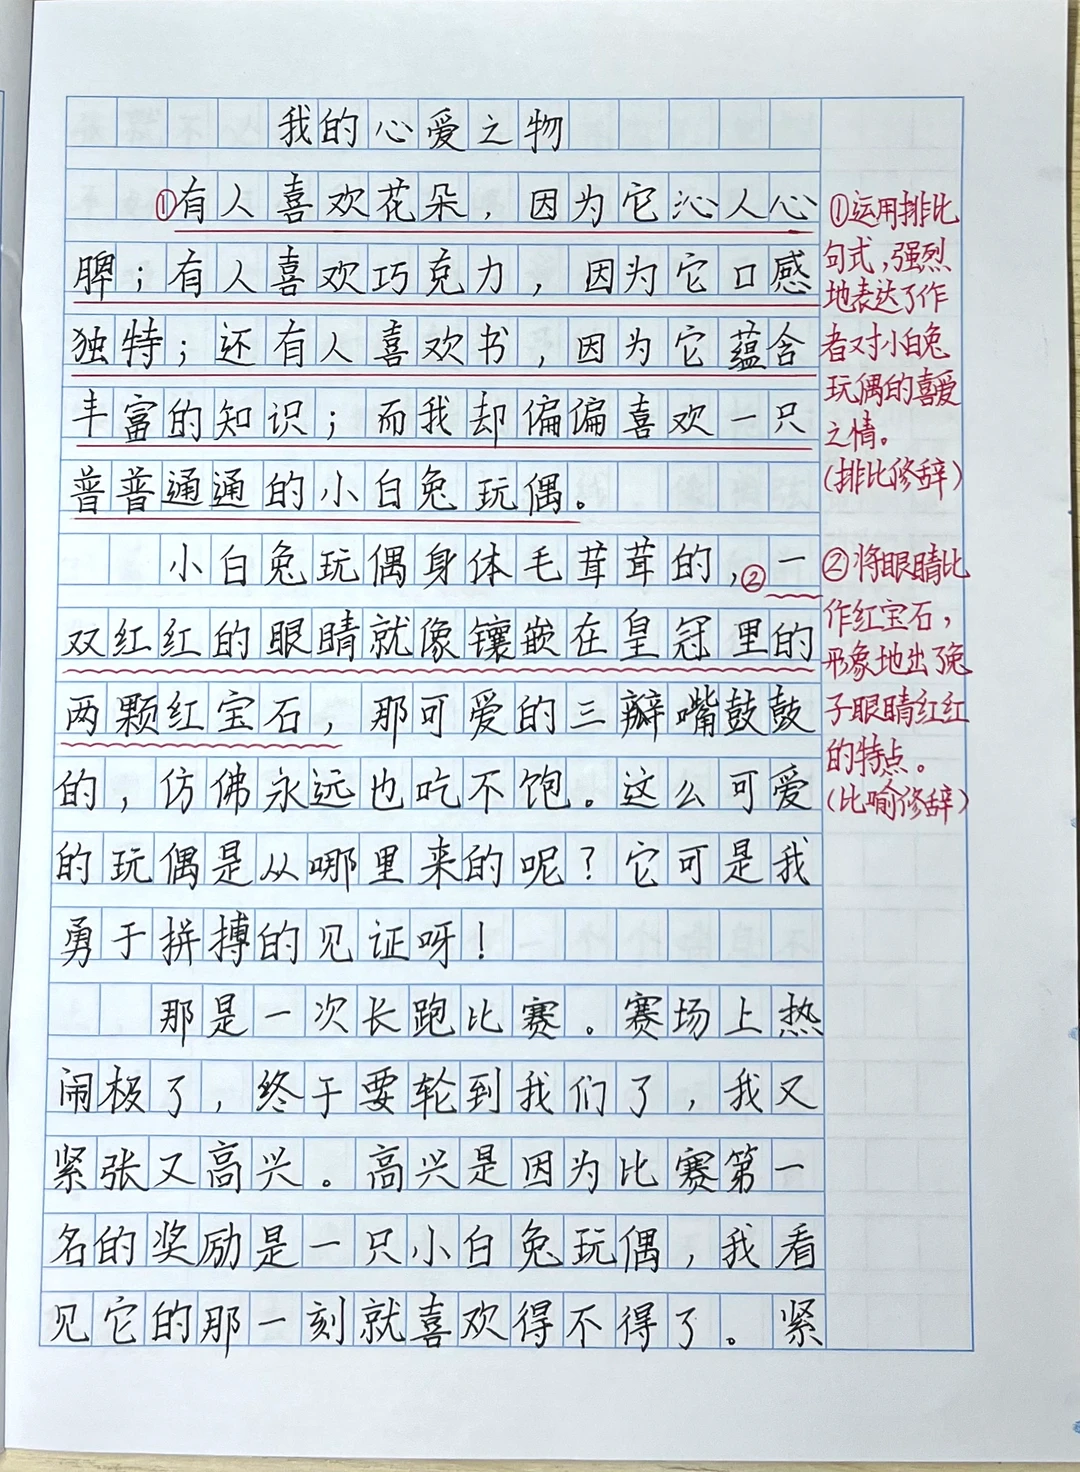 我的心爱之物
①有人喜欢花朵，因为它沁人心
脾；有人喜欢巧克力，因为它口感
独特；还有人喜欢书，因为它蕴含
丰富的知识；而我却偏偏喜欢一只
普普通通的小白兔玩偶。
小白兔玩偶身体毛茸茸的，②一
双红红的眼睛就像镶嵌在皇冠里的
两颗红宝石，那可爱的三瓣嘴鼓鼓
的，仿佛永远也吃不饱。这么可爱
的玩偶是从哪里来的呢？它可是我
勇于拼搏的见证呀！
那是一次长跑比赛。赛场上热
闹极了，终于要轮到我们了，我又
紧张又高兴。高兴是因为比赛第一
名的奖励是一只小白兔玩偶，我看
见它的那一刻就喜欢得不得了。紧
①运用排比
句式，强烈
地表达了作
者对小白兔
玩偶的喜爱
之情。
（排比修辞）
②将眼睛比
作红宝石，
形象地出了兔
子眼睛红红
的特点。
（比喻修辞）